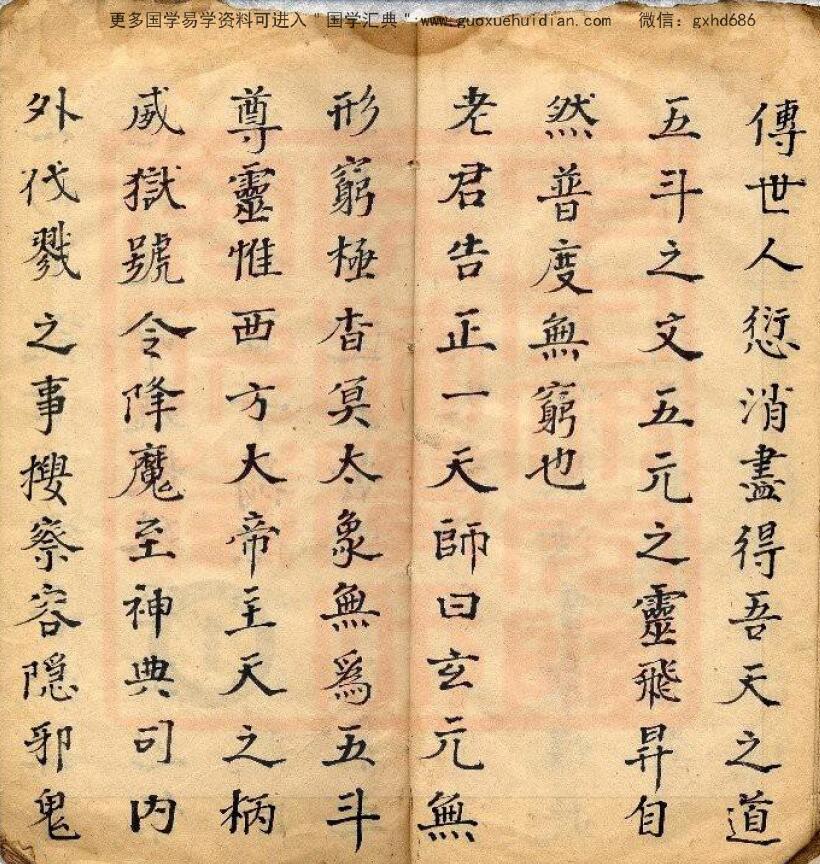 更多国学易学资料可进入＂国学汇典＂www.guoxuehuidian.com 微信：gxhd686
傳世人愆消盡得吾天之道
五斗之文五元之靈飛昇自
然普度無窮也
老君告正一天師曰玄元無
形窮極杳冥太象無爲五斗
尊靈惟西方大帝主天之柄
威獄號令降魔至神典司内
外伐戮之事搜察容隐邪鬼